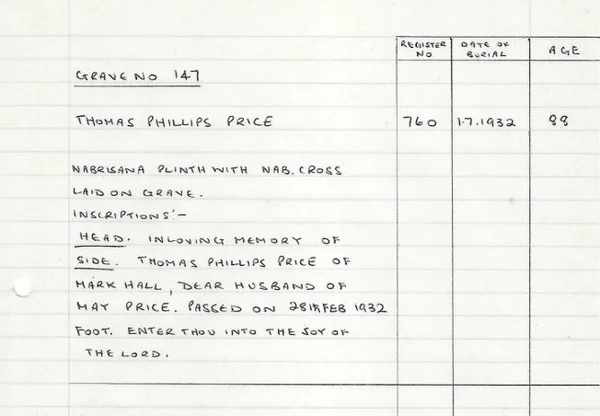 REGISTER NO
DATE OF BURIAL
AGE
GRAVE NO 147
THOMAS PHILLIPS PRICE 760 1.7.1932 88
NABRISANA PLINTH WITH NAB. CROSS
LAID ON GRAVE.
INSCRIPTIONS:-
HEAD. IN LOVING MEMORY OF
SIDE. THOMAS PHILLIPS PRICE OF
MARK HALL, DEAR HUSBAND OF
MAY PRICE. PASSED ON 28TH FEB 1932
FOOT. ENTER THOU INTO THE JOY OF
THE LORD.